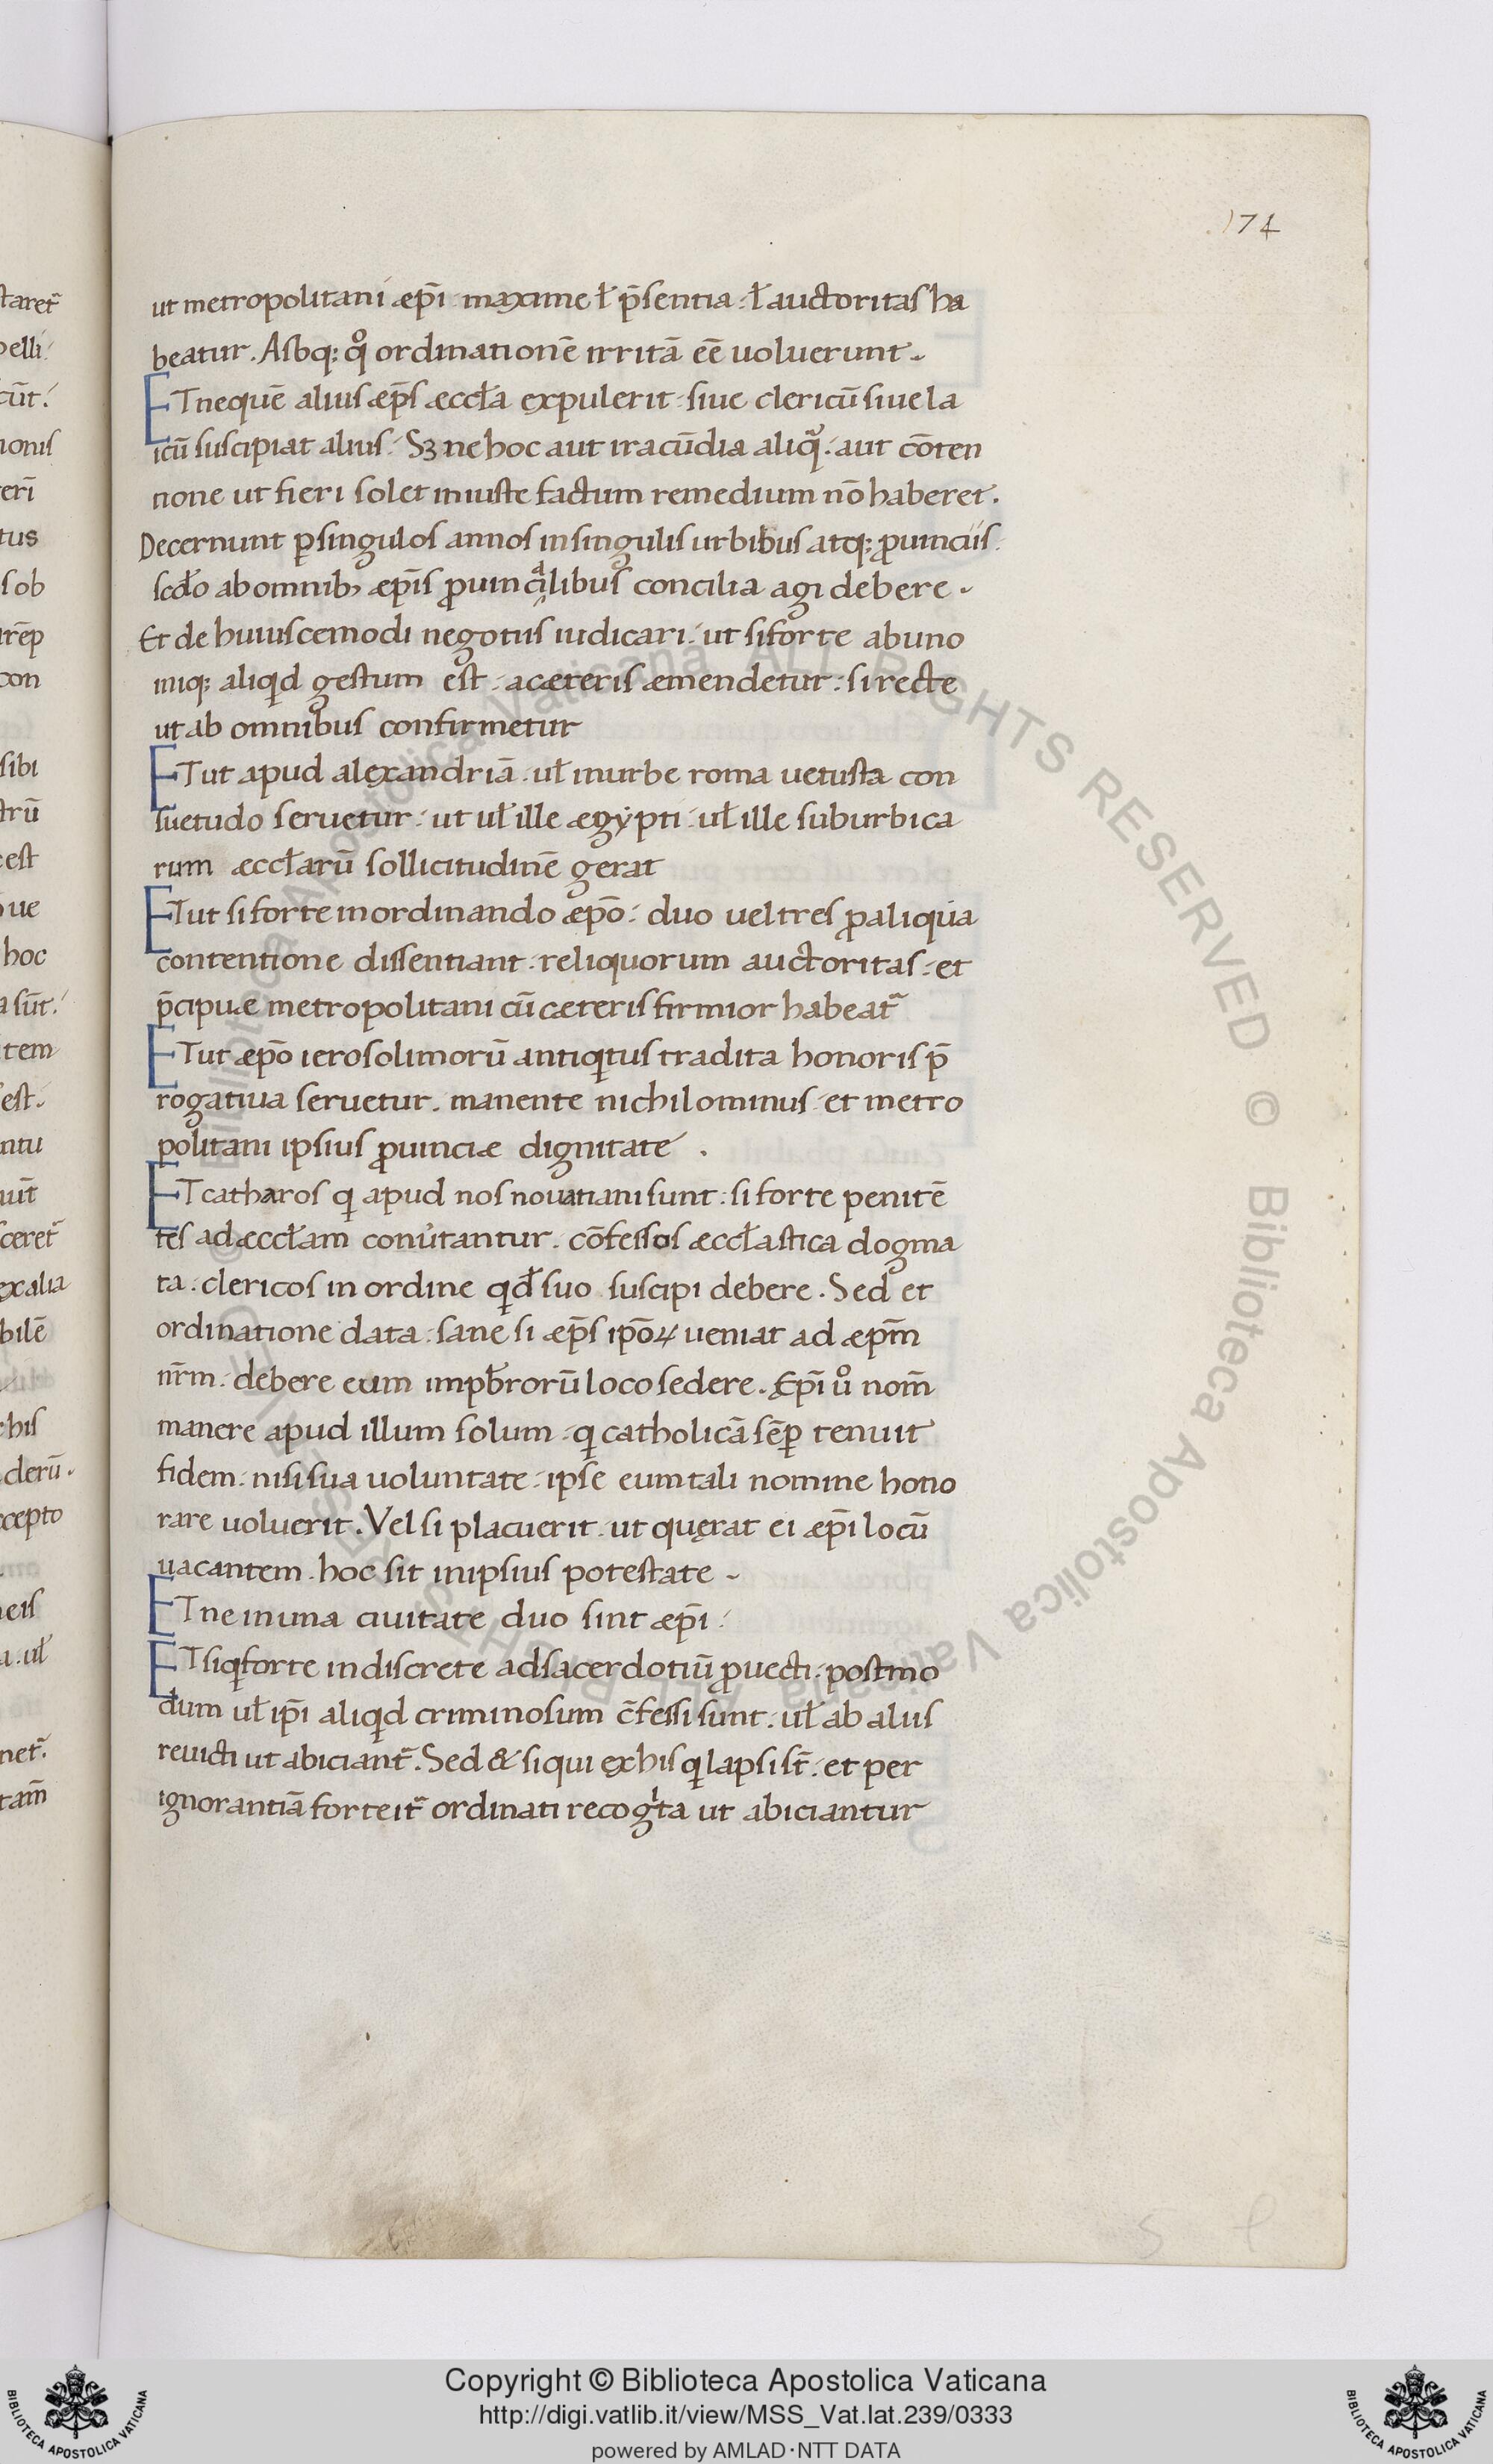 174
ut metropolitani æpı̄ · maxime ł p̄sentia · ł auctoritas ha
beatur. Absq; qͦ ordinationē irritā eē uoluerunt.
ET ne quē alius æp̄s æccła expulerit · siue clericū siue la
icū suscipiat alius. Sꝫ ne hoc aut iracūdia aliqᷓ · aut cōten
tione ut fieri solet iniuste factum remedium nō haberet.
Decernunt ꝑ singulos annos in singulis urbibus atq; ꝓuinciis
scđo ab omnibꝫ æpı̄s ꝓuincialibus concilia agi debere.
Et de huiuscemodi negotiis iudicari · ut si forte ab uno
iniq; aliqͥd gestum est · a cæteris æmendetur · si recte
ut ab omnibus confirmetur
ET ut apud alęxandriā · uł in urbe roma uetusta con
suetudo seruetur · ut uł ille ægẏpti · uł ille suburbica
rum æccłarū sollicitudinē gerat
ET ut si forte in ordinando æpō · duo uel tres ꝓ aliqua
contentione dissentiant · reliquorum auctoritas · et
p̄cipuæ metropolitani cū cæteris firmior habeat᷑
ET ut æpō ierosolimorū antiqͥtus tradita honoris p̄
rogatiua seruetur. manente nichilominus · et metro
politani ipsius ꝓuinciæ dignitate .
ET catharos qͥ apud nos nouatiani sunt · si forte penitē
tes ad æccłam conu̓tantur. cōfessos æccłastica dogma
ta · clericos in ordine qͥđ suo suscipi debere. Sed et
ordinatione data · sane si æp̄s ipōꝝ ueniat ad æpm̄
nr̄m · debere eum in pƀrorū loco sedere. Ępı̄ uͦ nom̄
manere apud illum solum · qͥ catholicā sēꝑ tenuit
fidem · nisi sua uoluntate · ipse eum tali nomine hono
rare uoluerit. Vel si placuerit · ut quęrat ei æpı̄ locū
uacantem · hoc sit in ipsius potestate.
ET ne in una ciuitate duo sint æpı̄ ·
ET si qͥ forte indiscrete ad sacerdotiū ꝓuecti · postmo
dum uł ipı̄ aliqͥd criminosum c̄fessi sunt · uł ab aliis
reuicti ut abiciant᷑. Sed & si qui ęx his qͥ lapsi st̄ · et per
ignorantiā forte it᷑ ordinati recogͥta ut abiciantur
Copyright © Biblioteca Apostolica Vaticana
http://digi.vatlib.it/view/MSS_Vat.lat.239/0333
powered by AMLAD·NTT DATA